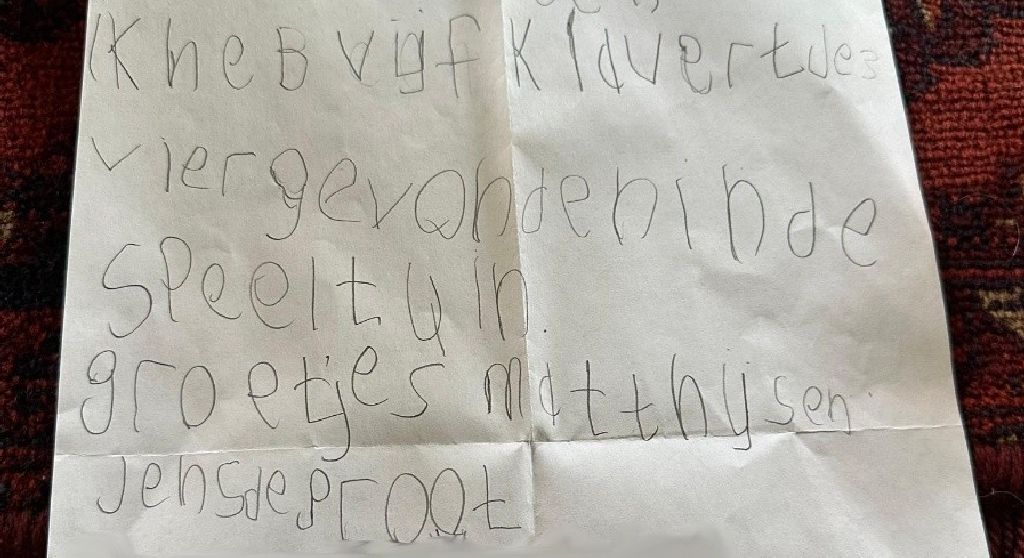 IK heB vijf Klavertjes
vier gevonden in de
speeltuin
groetjes matthijs en
Jens de groot